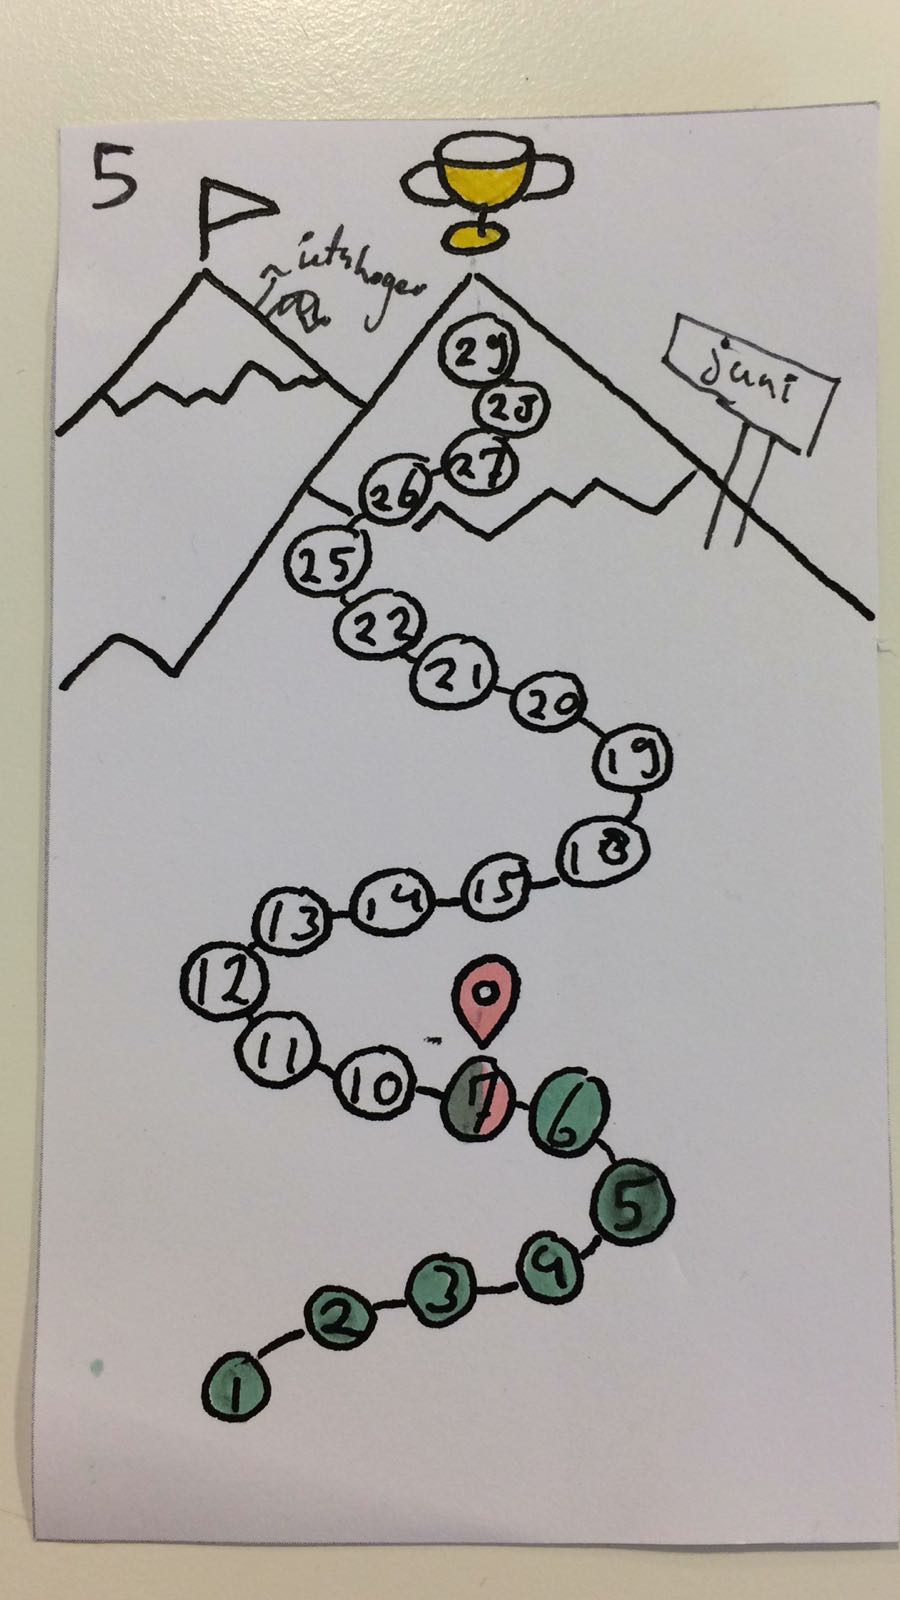 5
iets hoger
juni
29
28
27
26
25
22
21
20
19
18
15
14
13
12
11
10
7
6
5
4
3
2
1